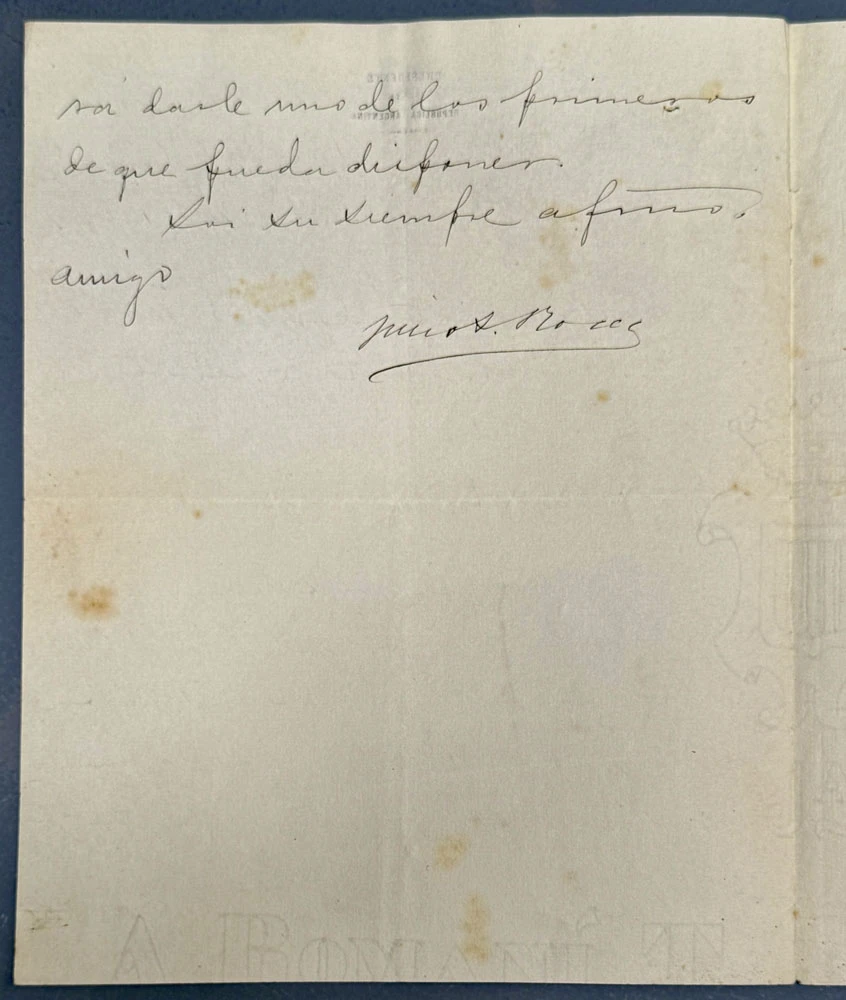 rá darle uno de los primeros
de que pueda disponer.
Soi su siempre afmo.
amigo
Julio A. Roca
PRESIDENTE
REPÚBLICA ARGENTINA